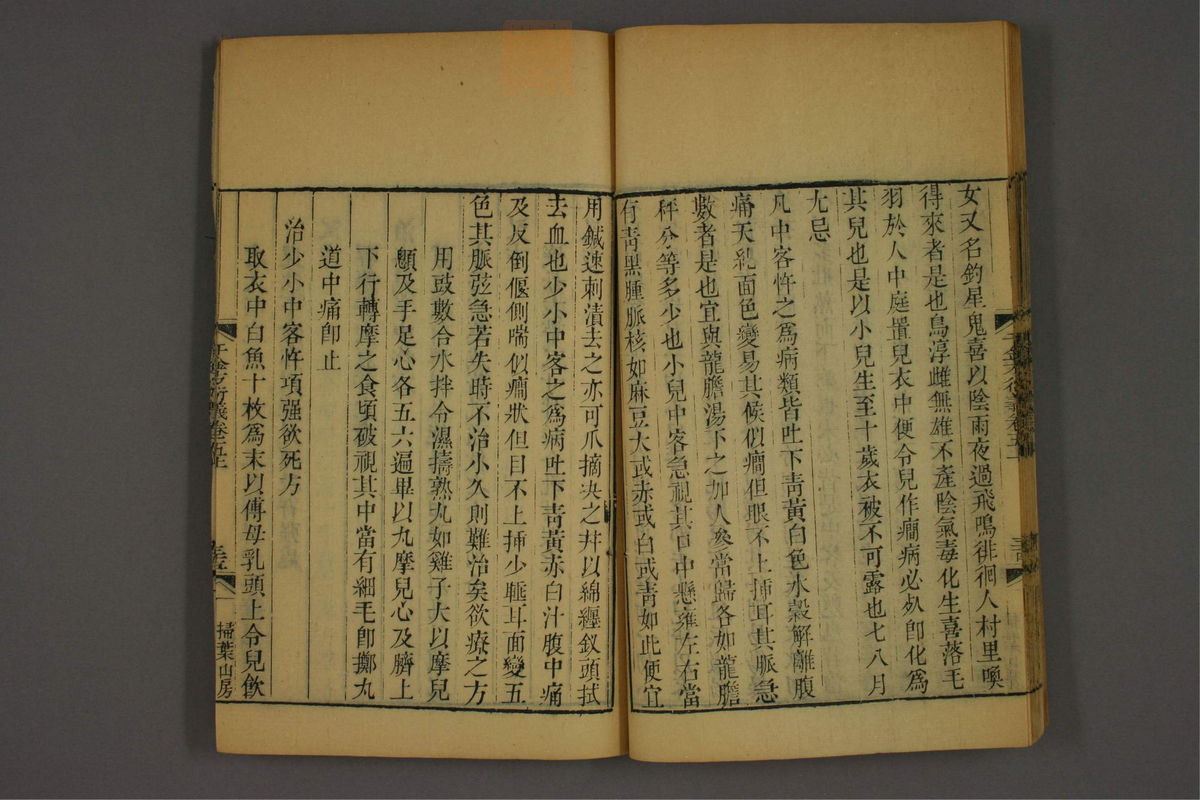 女又名鈎星鬼喜以陰雨夜過飛鳴徘徊人村里喚
得來者是也鳥淳雌無雄不產陰氣毒化生喜落毛
羽於人中庭置兒衣中便令兒作癎病必死即化為
其兒也是以小兒生至十歲衣被不可露也七八月
尤忌
凡中客忤之為病類皆吐下青黃白色水穀解離腹
痛夭糺面色變易其候似癎但眼不上揷耳其脈急
數者是也宜與龍膽湯下之加人參當歸各如龍膽
秤分等多少也小兒中客急視其口中懸雍左右當
有青黑腫脈核如麻豆大或赤或白或青如此便宜
用鍼速刺潰去之亦可爪摘决之并以綿纏釵頭拭
去血也少小中客之為病吐下青黃赤白汁腹中痛
及反倒偃側喘似癎狀但目不上揷少睡耳面變五
色其脈弦急若失時不治小久則難治矣欲療之方
用豉數合水拌令濕擣熟丸如雞子大以摩兒
顖及手足心各五六遍畢以丸摩兒心及臍上
下行轉摩之食頃破視其中當有細毛卽擲丸
道中痛卽止
治少小中客忤項强欲死方
取衣中白魚十枚為末以傅母乳頭上令兒飮
千金方衍義卷五上
掃葉山房